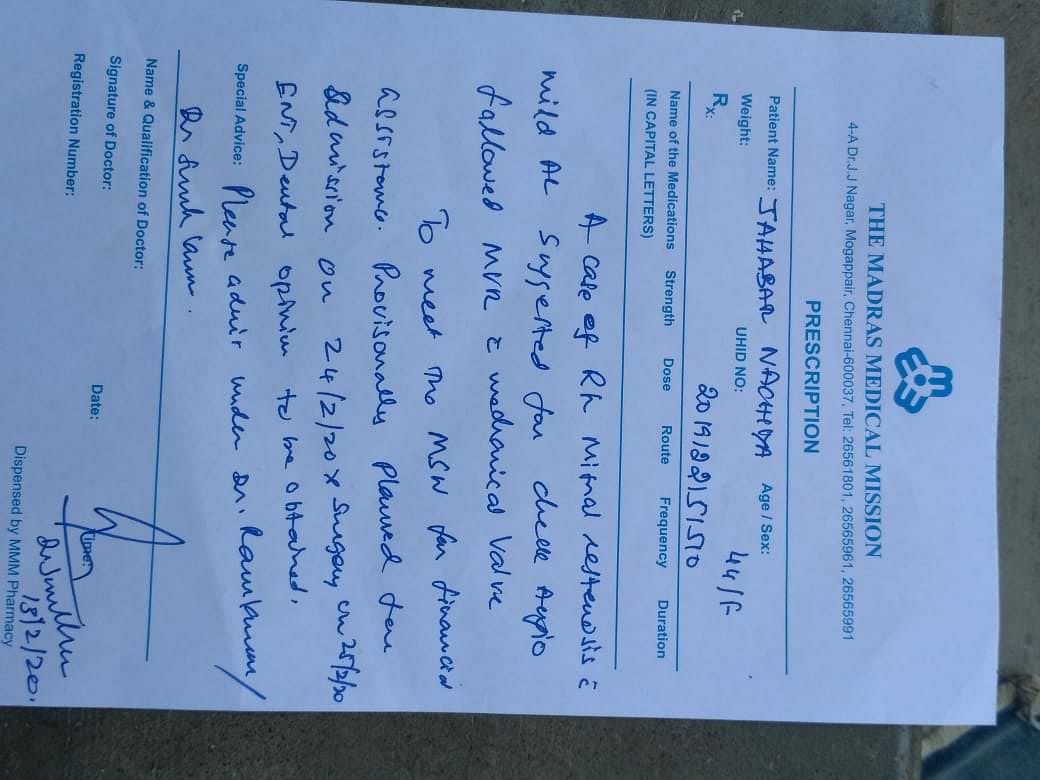 THE MADRAS MEDICAL MISSION
4-A Dr.J.J Nagar, Mogappair, Chennai-600037, Tel: 26561801, 26565961, 26565991
PRESCRIPTION
Patient Name: JAHABAR NACHIYA Age / Sex: 44/F
Weight: UHID NO: 2019122151510
Rx:
Name of the Medications Strength Dose Route Frequency Duration
(IN CAPITAL LETTERS)
A case of Rh mitral restenosis c̄
mild AR for check
followed MVR c̄ mechanical valve
To meet the MSW for financial
assistance. Provisionally planned
admission on 24/2/20 x surgery on 25/2/20
ENT, Dental opinion to be obtained.
Special Advice: Please admit under Dr. Ramkumar/
Dr
Name & Qualification of Doctor:
Signature of Doctor: Date: Time:
Registration Number:
13/2/20.
Dispensed by MMM Pharmacy